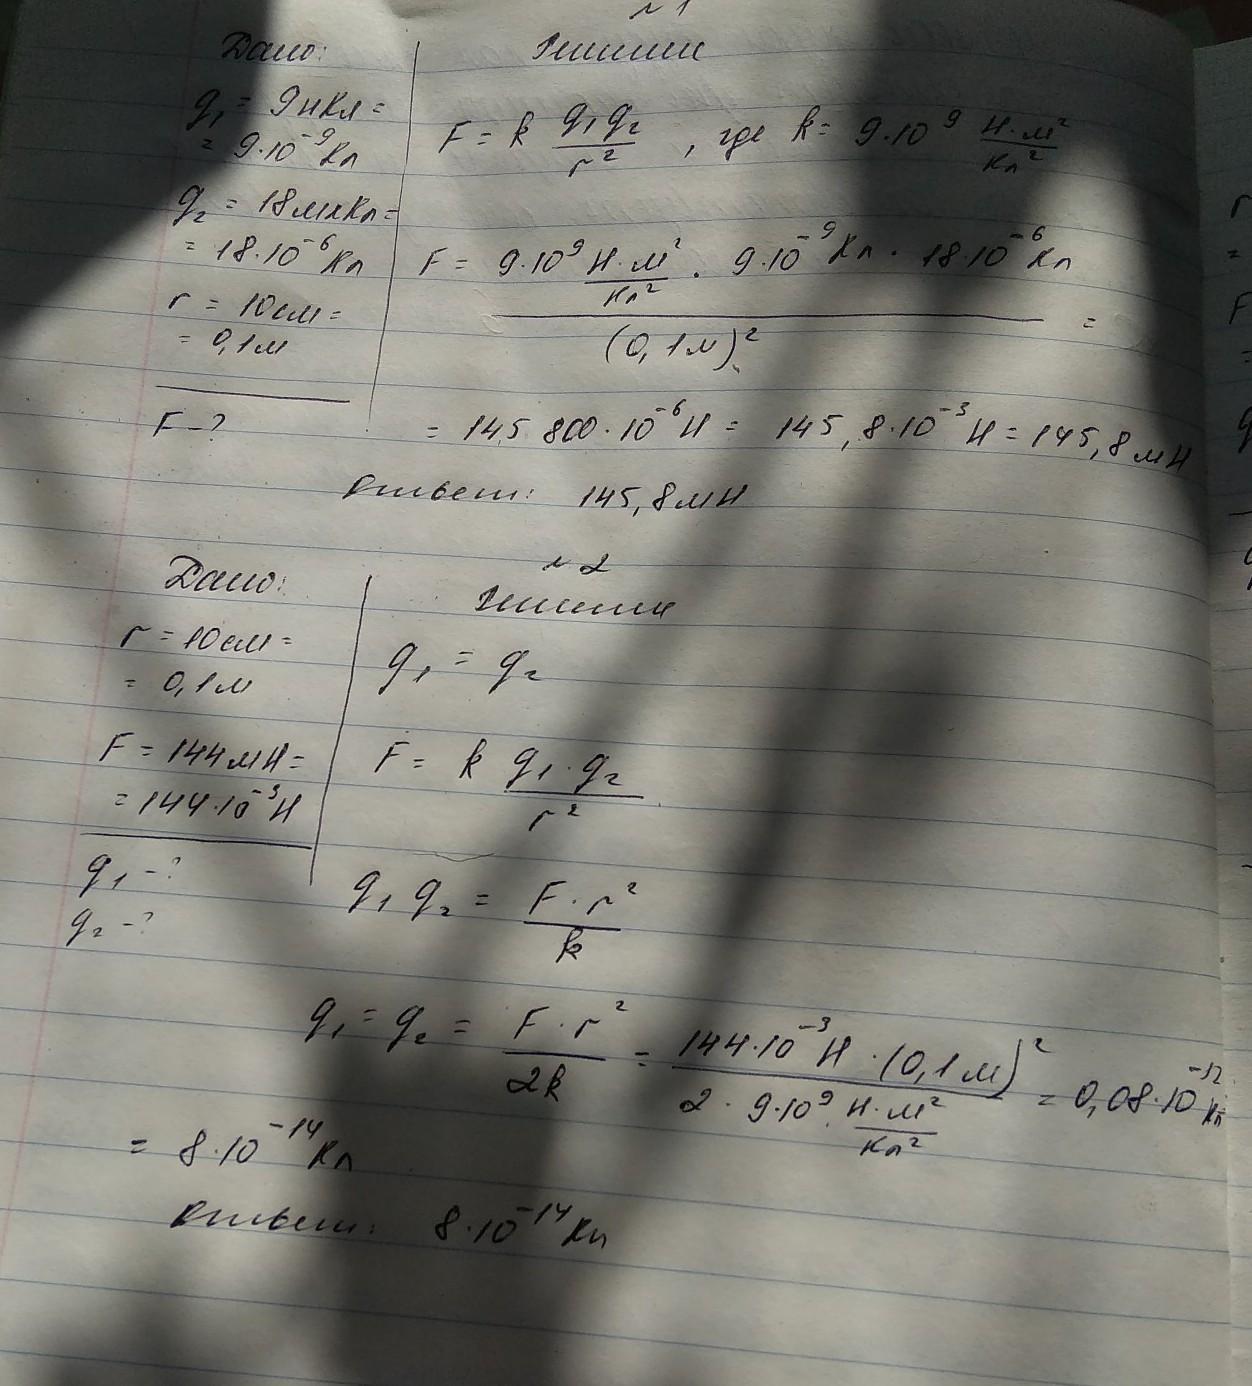 № 1
Дано:
Решение
q₁ = 9нКл =
= 9·10⁻⁹Кл
q₂ = 18мкКл =
= 18·10⁻⁶Кл
r = 10см =
= 0,1м
F - ?
F = k q₁q₂/r², где k = 9·10⁹ Н·м²/Кл²
F = 9·10⁹ Н·м²/Кл² · 9·10⁻⁹Кл · 18·10⁻⁶Кл / (0,1м)² =
= 145 800·10⁻⁶Н = 145,8·10⁻³Н = 145,8мН
Ответ: 145,8мН
№ 2
Дано:
Решение
r = 10см =
= 0,1м
F = 144мН =
= 144·10⁻³Н
q₁ - ?
q₂ - ?
q₁ = q₂
F = k q₁·q₂/r²
q₁q₂ = F·r²/k
q₁ = q₂ = F·r²/2k = 144·10⁻³Н·(0,1м)²/2·9·10⁹ Н·м²/Кл² = 0,08·10⁻¹²Кл
= 8·10⁻¹⁴Кл
Ответ: 8·10⁻¹⁴Кл